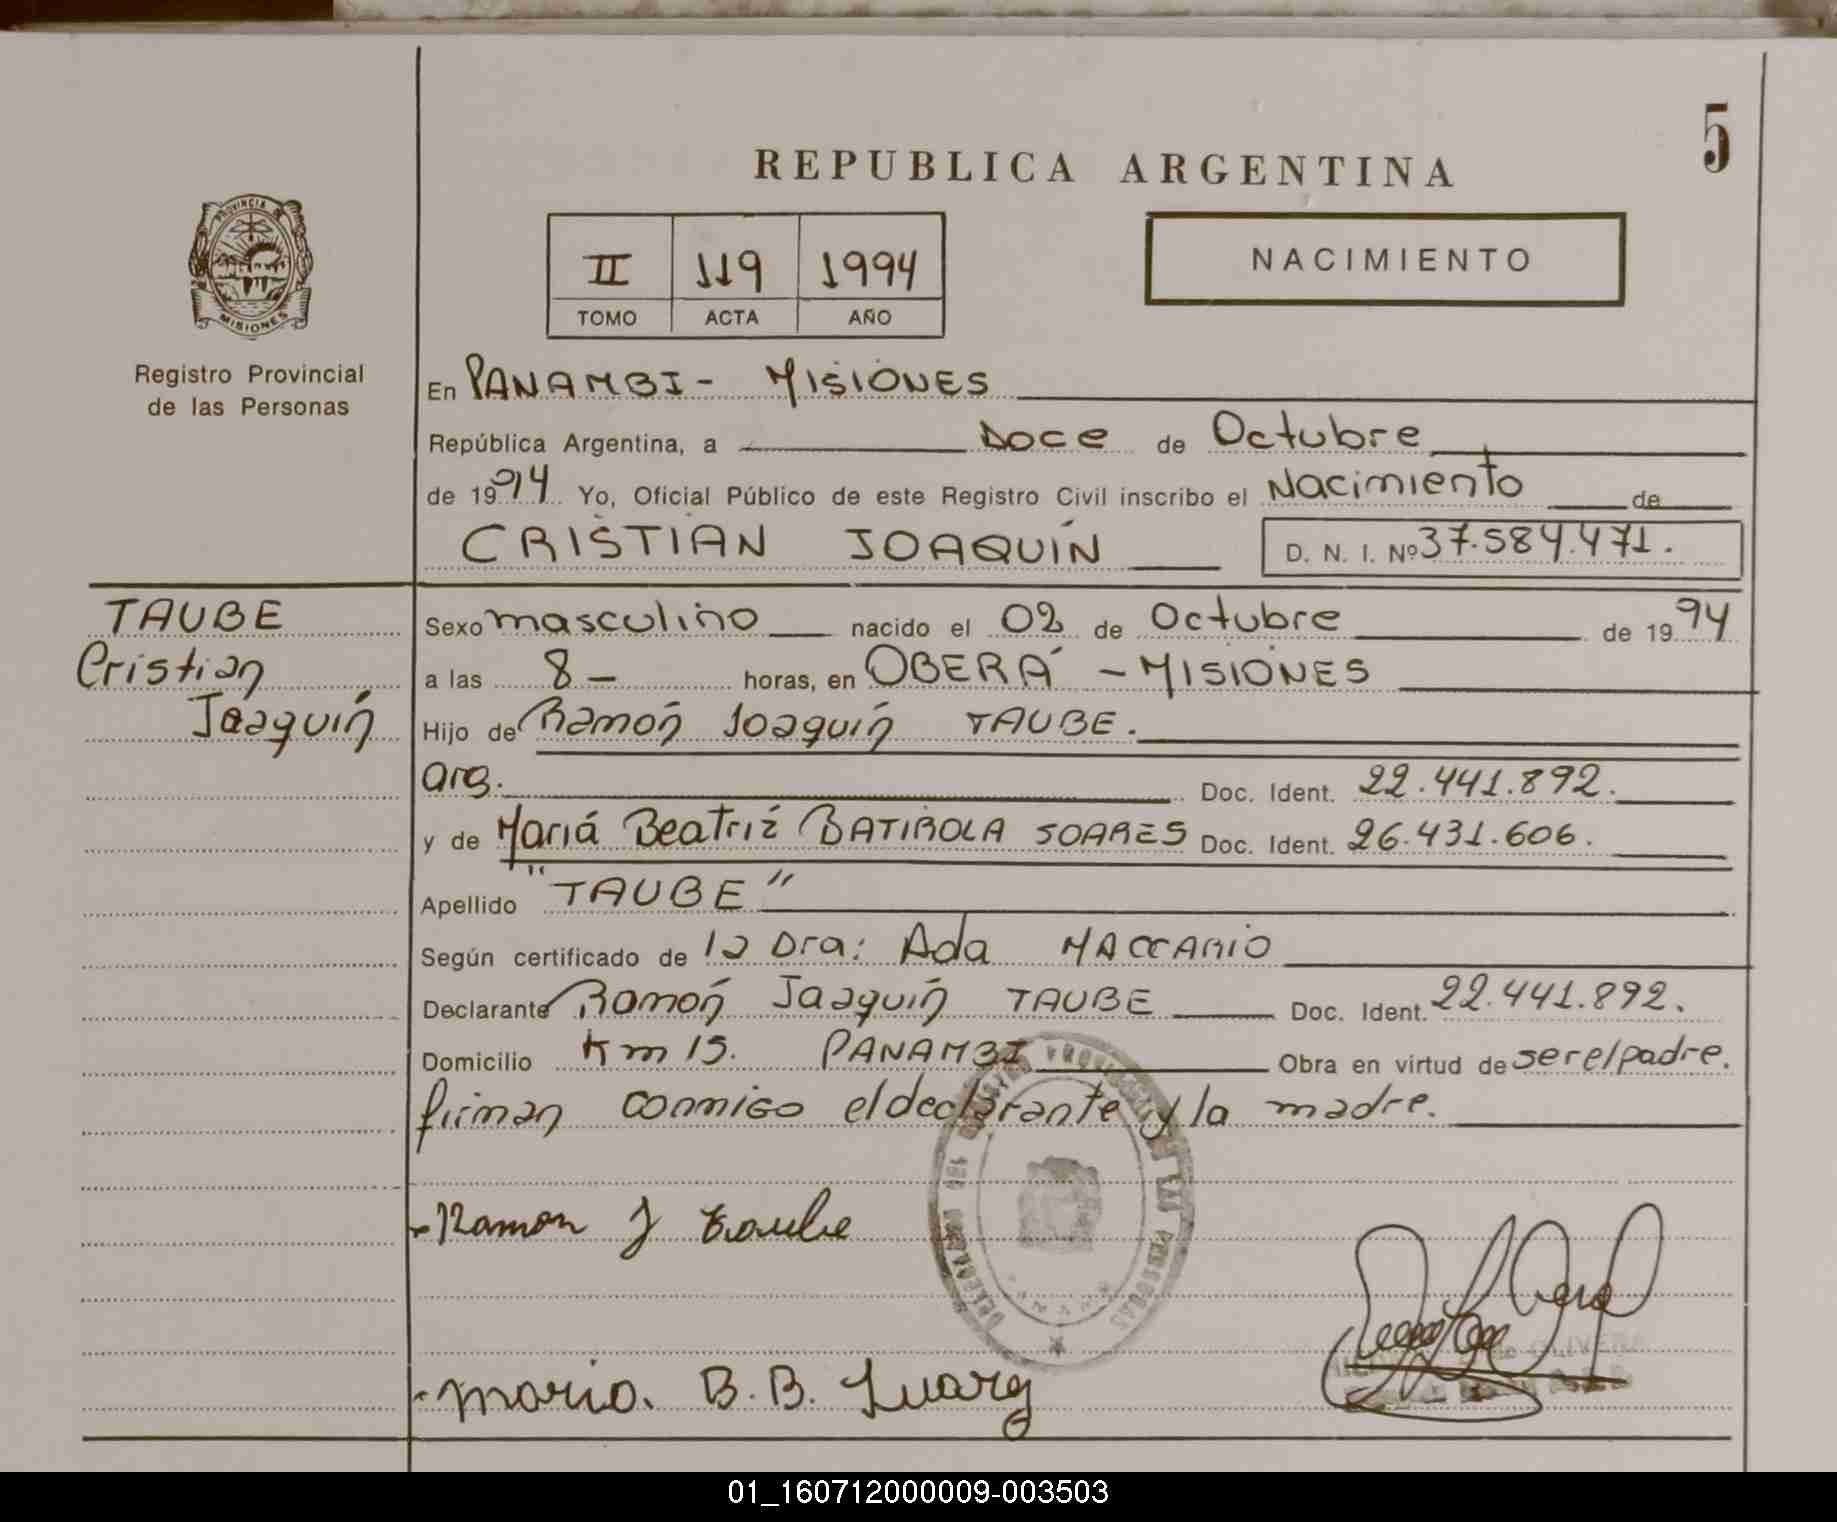 5
REPUBLICA ARGENTINA
PROVINCIA DE
MISIONES
Registro Provincial
de las Personas
II 119 1994
TOMO ACTA AÑO
NACIMIENTO
En PANAMBI - MISIONES
República Argentina, a Doce de Octubre
de 1994 Yo, Oficial Público de este Registro Civil inscribo el Nacimiento de
CRISTIAN JOAQUÍN D. N. I. Nº 37.584.471.
TAUBE
Cristian
Joaquín
Sexo masculino nacido el 02 de Octubre de 1994
a las 8 - horas, en OBERÁ - MISIONES
Hijo de Ramón Joaquín TAUBE.
arg. Doc. Ident. 22.441.892.
y de Mariá Beatriz BATIROLA SOARES Doc. Ident. 26.431.606.
Apellido "TAUBE"
Según certificado de la Dra: Ada MACCARIO
Declarante Ramón Joaquín TAUBE Doc. Ident. 22.441.892.
Domicilio Km 15. PANAMBI Obra en virtud de ser el padre.
firman conmigo el declarante y la madre.
Ramon J Taube
Maria. B. B.
OLIVERA
01_160712000009-003503